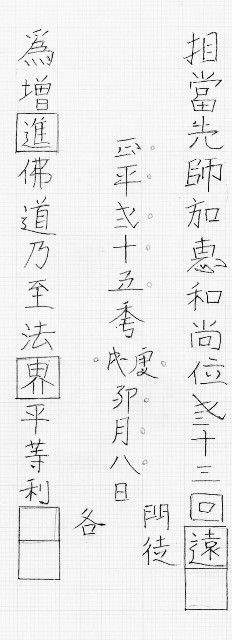 相當先師加惠和尚位弎十三回遠
正平弍十五秊庚戌卯月八日
門徒
各
爲增進佛道乃至法界平等利